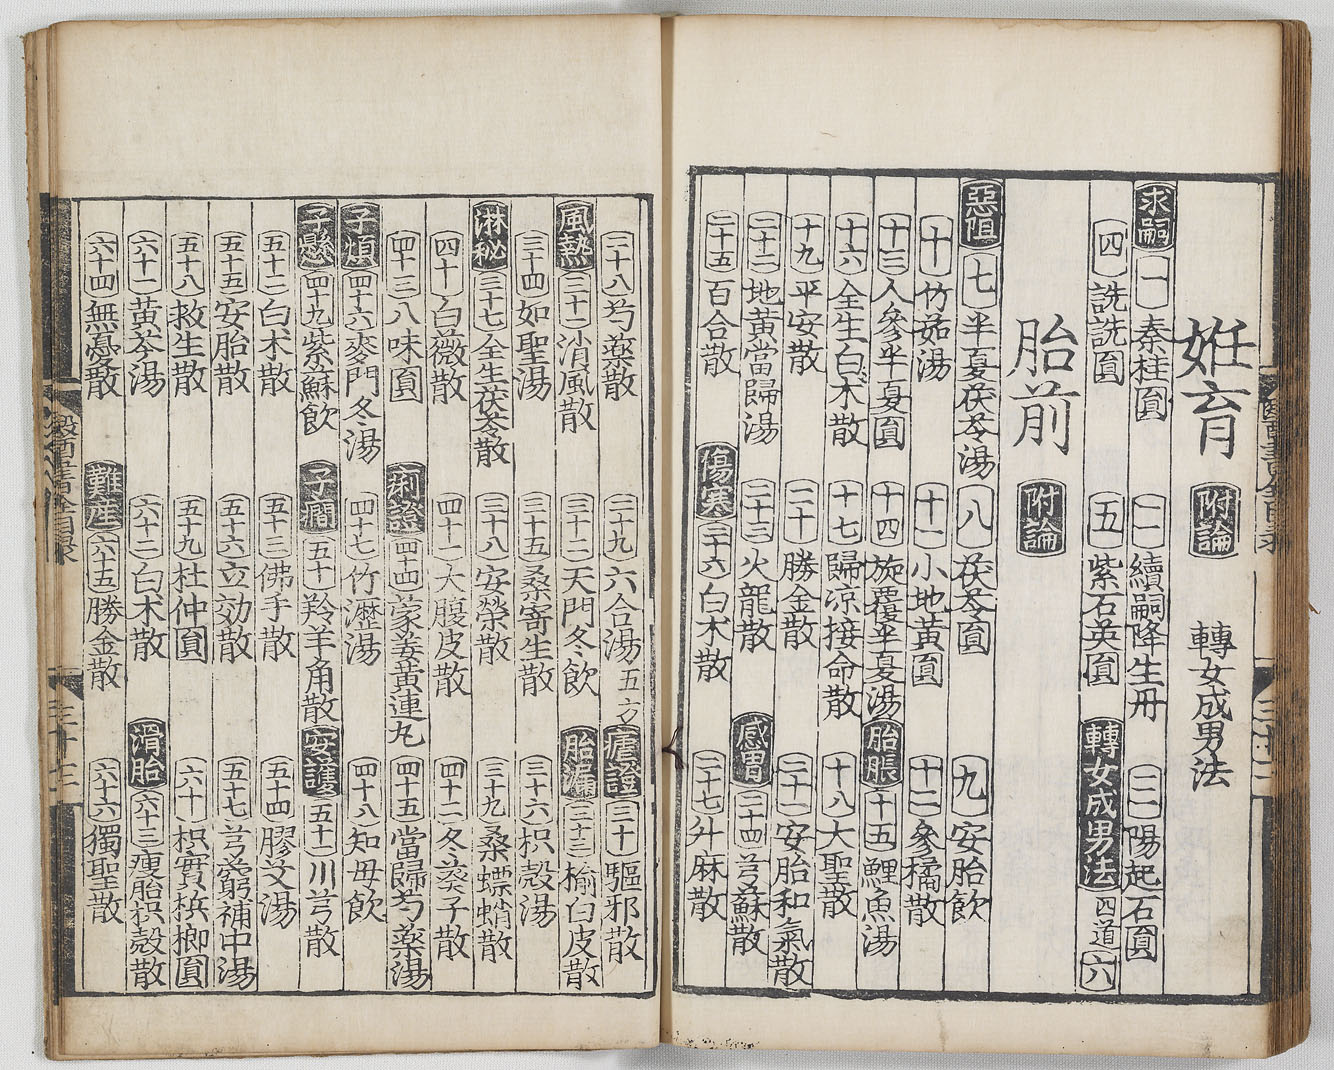 姙育 附論 轉女成男法
求嗣 一 秦桂圓 二 續嗣降生丹 三 陽起石圓
四 詵詵圓 五 紫石英圓 轉女成男法 四道 六
胎前 附論
惡阻 七 半夏茯苓湯 八 茯苓圓 九 安胎飲
十 竹茹湯 十一 小地黃圓 十二 參橘散
十三 人參半夏圓 十四 旋覆半夏湯 胎脹 十五 鯉魚湯
十六 全生白朮散 十七 歸凉接命散 十八 大聖散
十九 平安散 二十 勝金散 二十一 安胎和氣散
二十二 地黃當歸湯 二十三 火龍散 感冒 二十四 芎蘇散
二十五 百合散 傷寒 二十六 白朮散 二十七 升麻散
二十八 芍藥散 二十九 六合湯 五方 瘧證 三十 驅邪散
風熱 三十一 消風散 三十二 天門冬飲 胎漏 三十三 榆白皮散
三十四 如聖湯 三十五 桑寄生散 三十六 枳殼湯
淋秘 三十七 全生茯苓散 三十八 安榮散 三十九 桑螵蛸散
四十 白薇散 四十一 大腹皮散 四十二 冬葵子散
四十三 八味圓 痢證 四十四 蒙姜黃連丸 四十五 當歸芍藥湯
子煩 四十六 麥門冬湯 四十七 竹瀝湯 四十八 知母飲
子懸 四十九 紫蘇飲 子癇 五十 羚羊角散 安護 五十一 川芎散
五十二 白朮散 五十三 佛手散 五十四 膠艾湯
五十五 安胎散 五十六 立効散 五十七 芎藭補中湯
五十八 救生散 五十九 杜仲圓 六十 枳實檳榔圓
六十一 黃芩湯 六十二 白朮散 滑胎 六十三 瘦胎枳殼散
六十四 無憂散 難産 六十五 勝金散 六十六 獨聖散